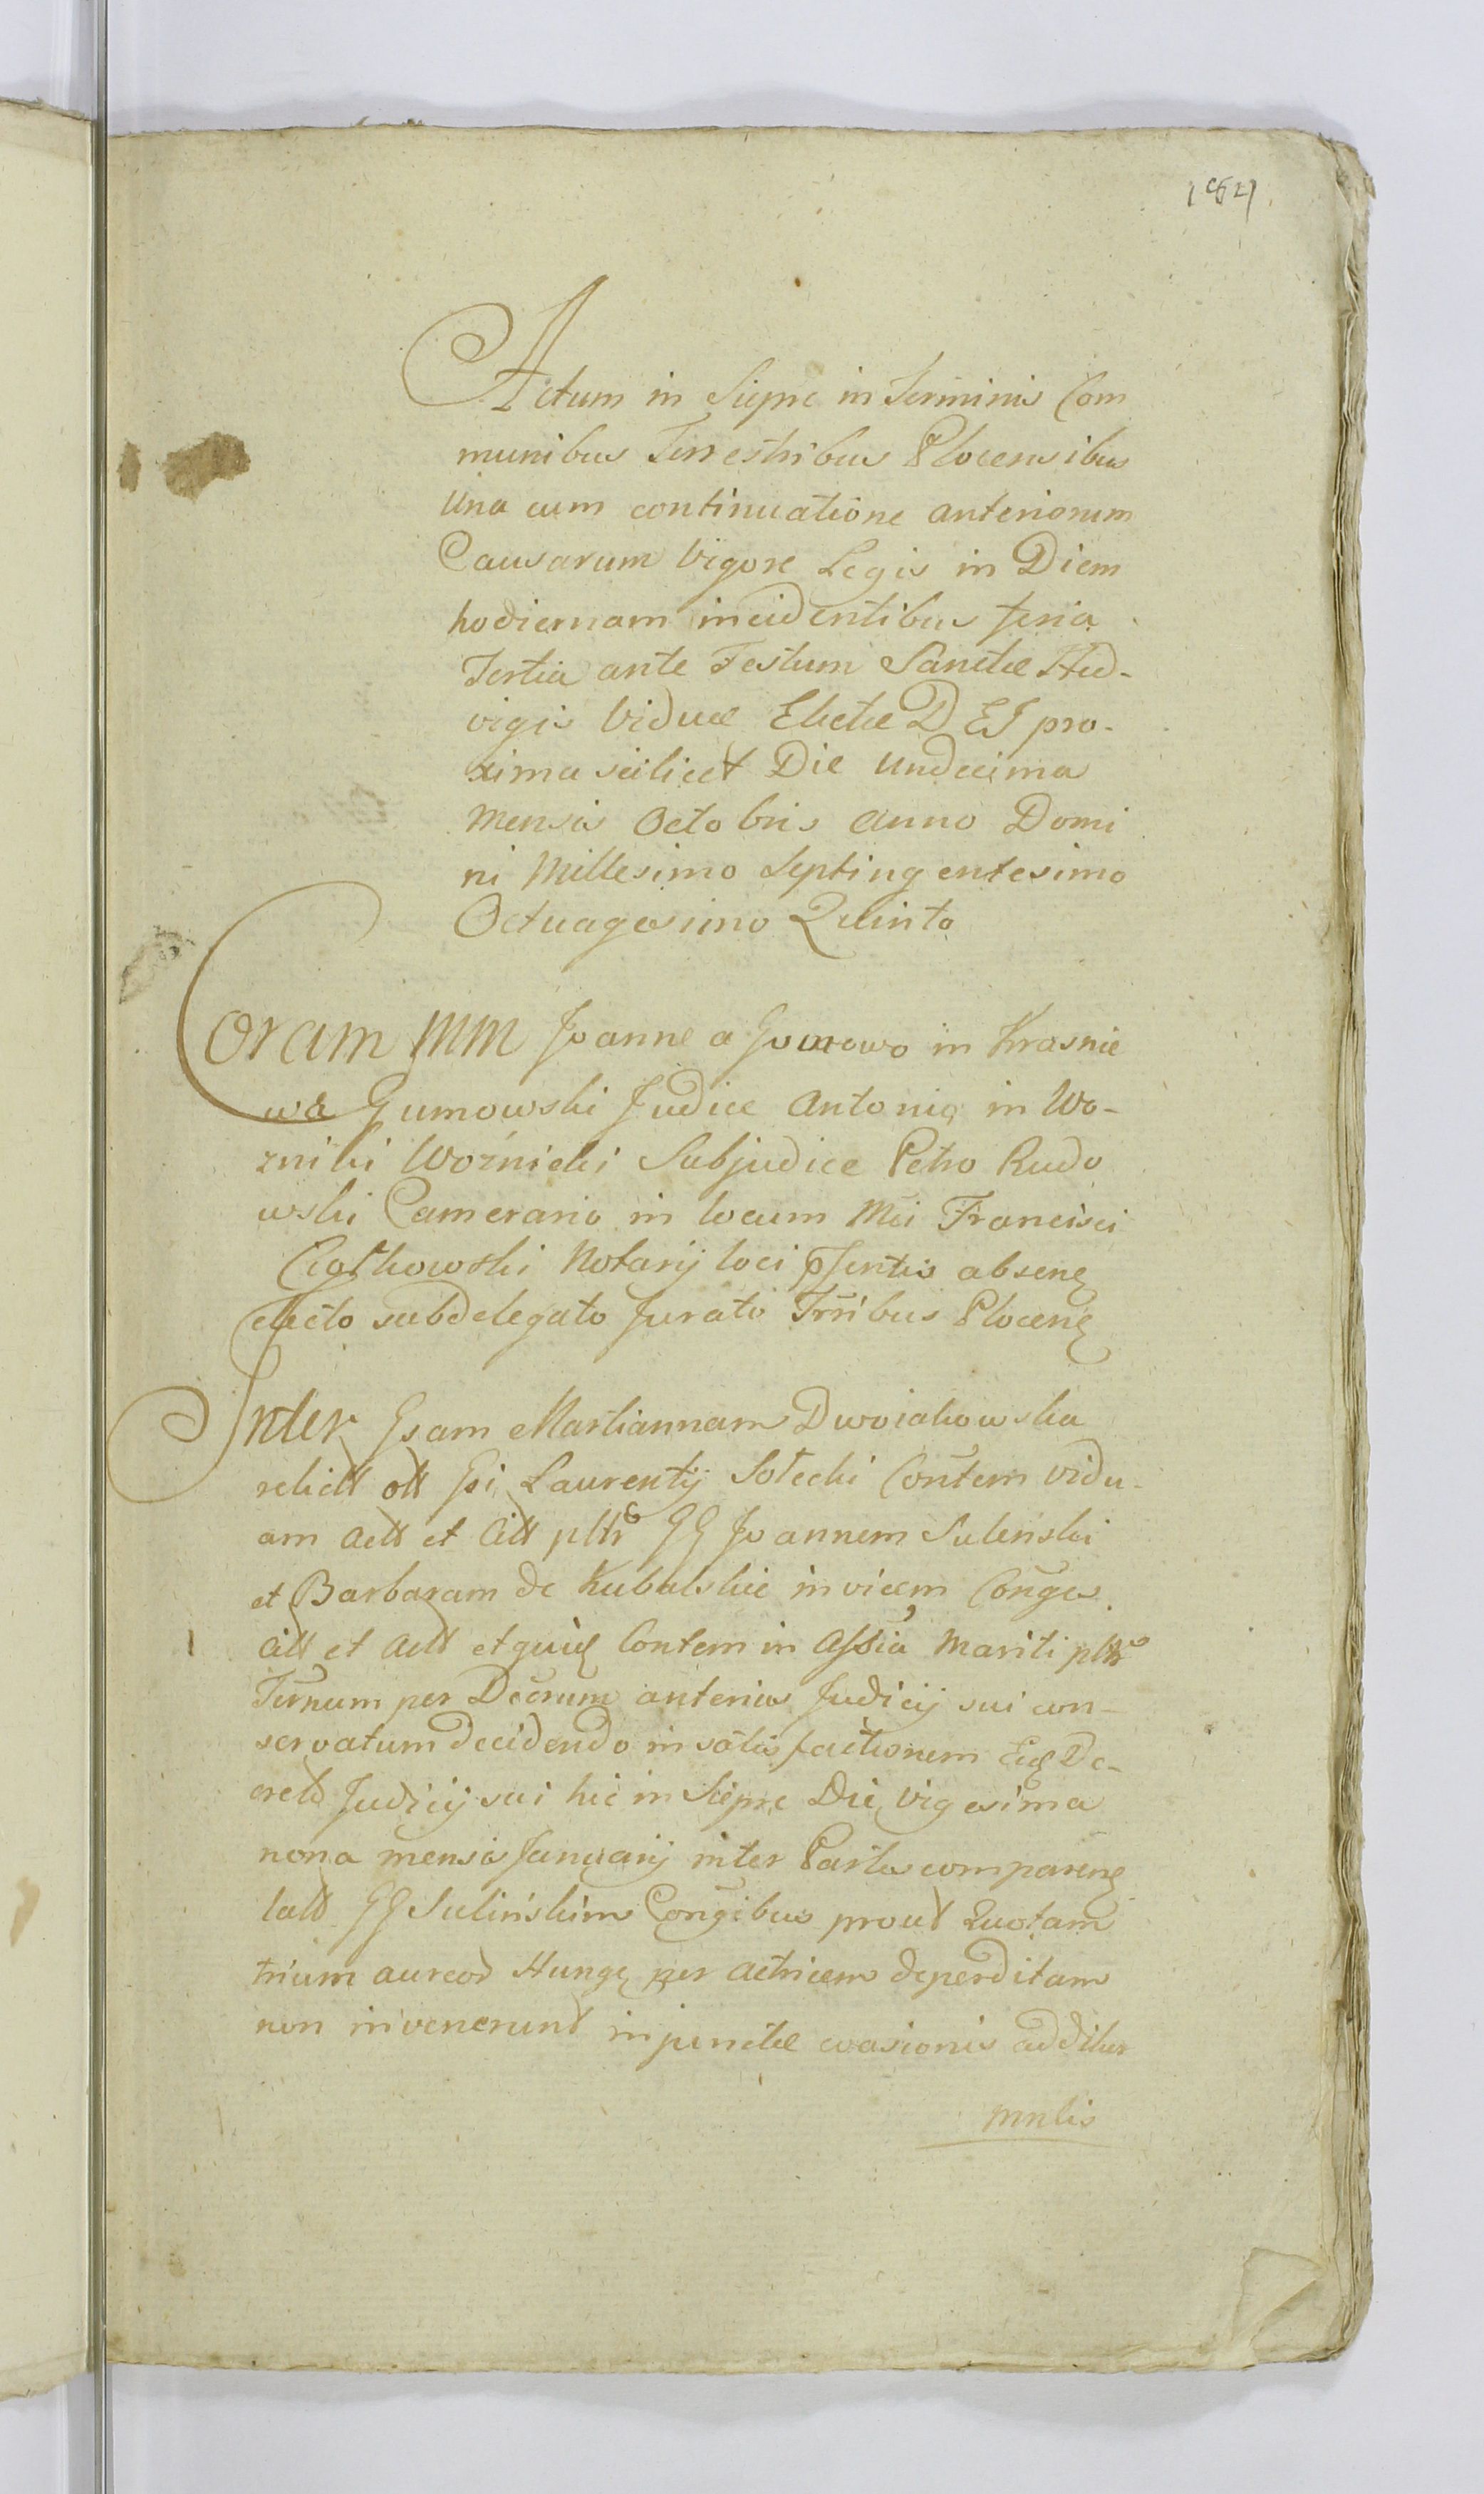 Actum in Siepre in Terminis Com
munibus Terrestribus Plocensibus
Una cum continuatione anteriorum
Causarum Vigore Legis in Diem
hodiernam incidentibus feria
Tertia ante Festum Sanctæ Hed-
vigis Viduæ Electæ DEI pro-
xima scilicet Die Undecima
Mensis Octobris Anno Domi
ni Millesimo Septingentesimo
Octuagesimo Quinto
Coram MM Joanne a Gumowo in Krasnie
wa Gumowski Judice Antonio in Wo-
zniki Woźnicki Subjudice Petro Rudo
wski Camerario in locum Mci Francisci
Ciołkowski Notarij loci psentis absenę
electo subdelegato Jurato Trribus Plocenę
Inter Gsam Mariannam Dwoiakowska
relictt ott Gsi Laurentij Sołecki Contem vidu-
am Actt et Citt GG Joannem Suleński
et Barbaram de Kubalskie invicem Conges
Citt et Actt Contem in Assia Mariti
Ternum per Decrum anterius Judicij sui con-
servatum decidendo in satisfactionem De-
creti Judicij sui hic in Siepre Die Vigesima
nona mensis Januarij inter Partes comparenę
latt GG Sulińskim Congibus prout Quotam
trium aureor Hungę per Actricem deperditam
non invenerunt injunctæ evasionis additur
mnlis